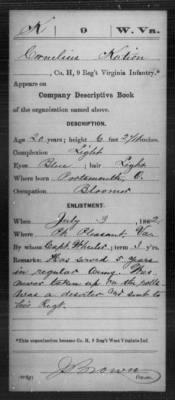 K 9 W. Va.
Cornelius Kation
, Co. H, 9 Reg't Virginia Infantry.*
Appears on
Company Descriptive Book
of the organization named above.
DESCRIPTION.
Age 20 years; height 6 feet 2½ inches.
Complexion Light
Eyes Blue; hair Light
Where born Portsmouth, O.
Occupation Bloomer
ENLISTMENT.
When July 3, 1862.
Where Pt. Pleasant, Va
By whom Capt Wheeler; term 3 y'rs.
Remarks: Has served 5 years
in regular Army. Was
never taken up on the rolls
was a deserter and sent to
his Regt.
*This organization became Co. H, 9 Reg't West Virginia Inf.
J Brown
Copyist.